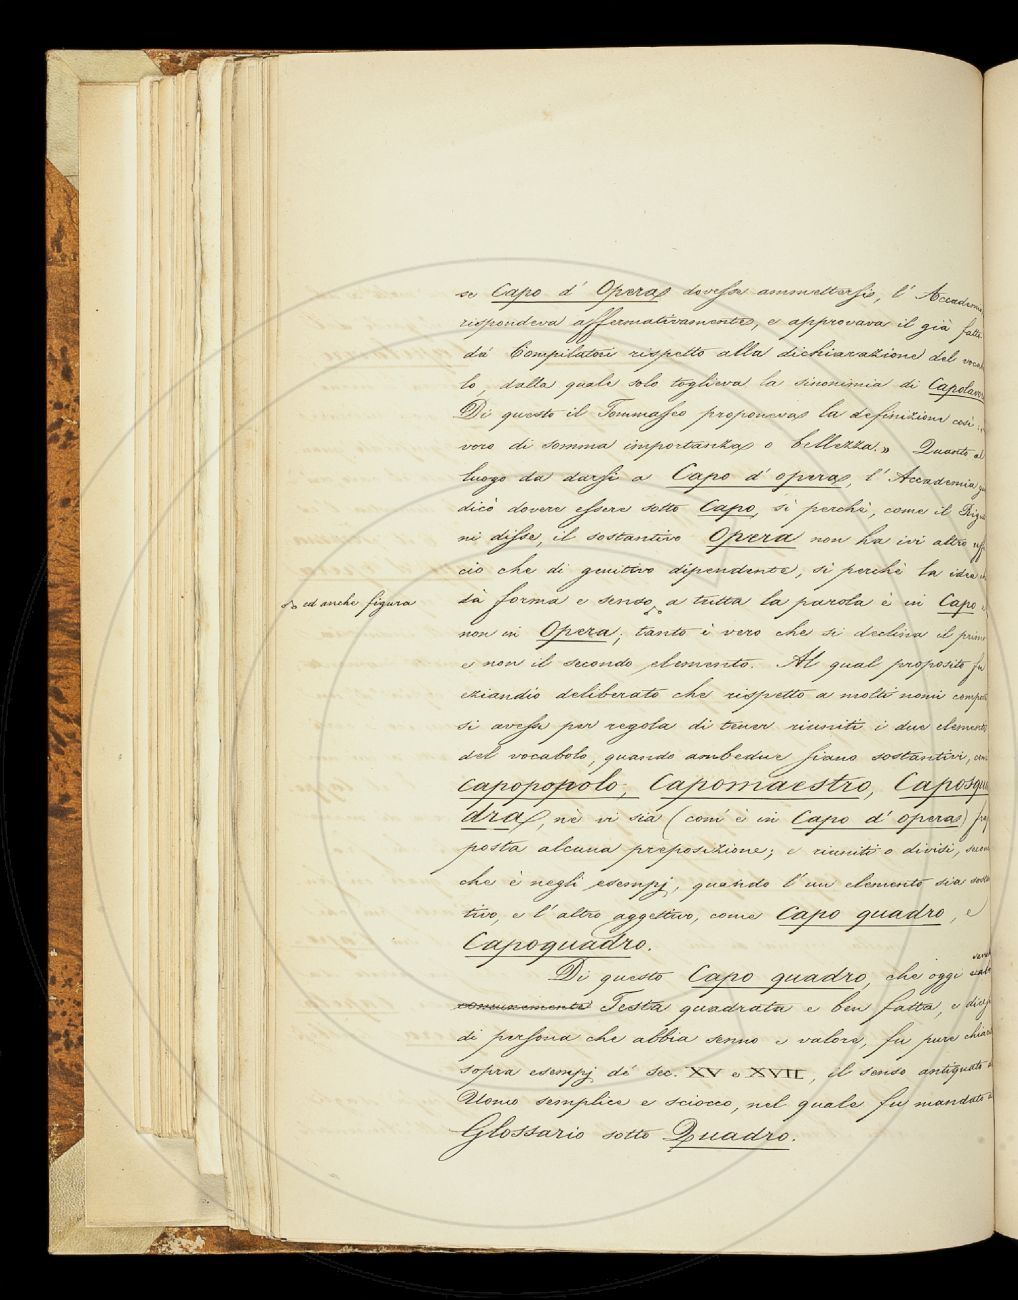 se Capo d' Opera dovesse ammettersi, l' Accademia
rispondeva affermativamente, e approvava il già fatto
da' Compilatori rispetto alla dichiarazione del voca
lo, dalla quale solo toglieva la sinonimia di Capolavoro
Di questo il Tommasèo proponeva la definizione così:
voro di somma importanza o bellezza.» Quanto al
luogo da darsi a Capo d' opera, l' Accademia giu
dicò dovere essere sotto Capo, sì perchè, come il Rigu
ni disse, il sostantivo Opera non ha ivi altro uffi
cio che di genitivo dipendente, sì perchè la idea
ed anche figura
dà forma e senso a tutta la parola è in Capo e
non in Opera; tanto è vero che si declina il primo
e non il secondo elemento. Al qual proposito fu
eziandio deliberato che rispetto a molti nomi composti
si avesse per regola di tener riuniti i due elementi
del vocabolo, quando ambedue siano sostantivi, come
Capopopolo, Capomaestro, Caposqua
dra, nè vi sia (com' è in Capo d' opera) frap
posta alcuna preposizione; e riuniti o divisi, secon
che è negli esempj, quando l' un elemento sia sosta
tivo, e l' altro aggettivo, come Capo quadro, e
Capoquadro.
Di questo Capo quadro, che oggi
comunemente Testa quadrata e ben fatta, e dicesi
di persona che abbia senno e valore, fu pure chiari
sopra esempj de' sec. XV e XVII, il senso antiquato di
Uomo semplice e sciocco, nel quale fu mandato al
Glossario sotto Quadro.